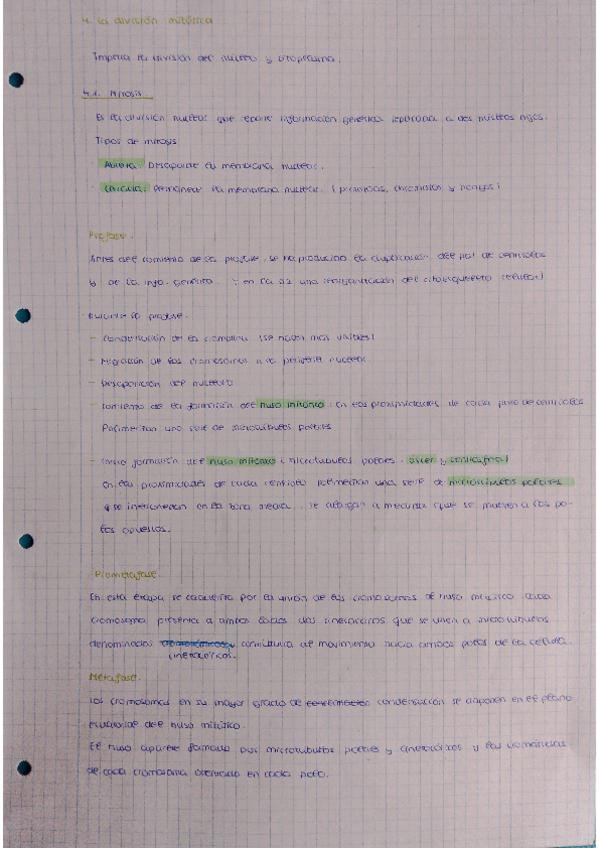 4. La división mitótica
Implica la división del núcleo y citoplasma.
4.1. Mitosis
Es la división nuclear que reparte información genética replicada a dos núcleos hijos.
Tipos de mitosis
Abierta: Desaparece la membrana nuclear.
Cerrada: Permanece la membrana nuclear. (protistas, y hongos)
Profase.
Antes del comienzo de la profase, se ha producido la duplicación del par de centriolos
y de la info. genética. en la G2 una reorganización del citoesqueleto celular)
Durante la profase:
- Condensación de la cromatina (se hacen más visibles)
- Migración de los cromosomas a la periferia nuclear
- Desaparición del nucleolo
- Comienzo de la formación del huso mitótico: En las proximidades de cada par de centriolos
Polimerizan una serie de microtúbulos polares
- formación del huso mitótico (microtúbulos polares, áster y centrosfera)
En las proximidades de cada centriolo polimerizan una serie de microtúbulos polares
que se interconectan en la zona media. Se alargan a medida que se mueven a los po-
los opuestos.
Prometafase.
En esta etapa se caracteriza por la unión de los cromosomas al huso mitótico. Cada
cromosoma presenta a ambos lados dos cinetocoros que se unen a microtúbulos
denominados contribuirá al movimiento hacia ambos polos de la célula.
cinetocóricos.
Metafase.
Los cromosomas en su mayor grado de condensación se disponen en el plano
ecuatorial del huso mitótico.
El huso aparece formado por microtúbulos polares y cinetocóricos y las cromátidas
de cada cromosoma orientado en cada polo.